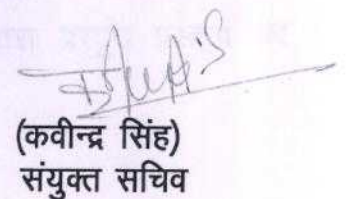 (कवीन्द्र सिंह)
संयुक्त सचिव